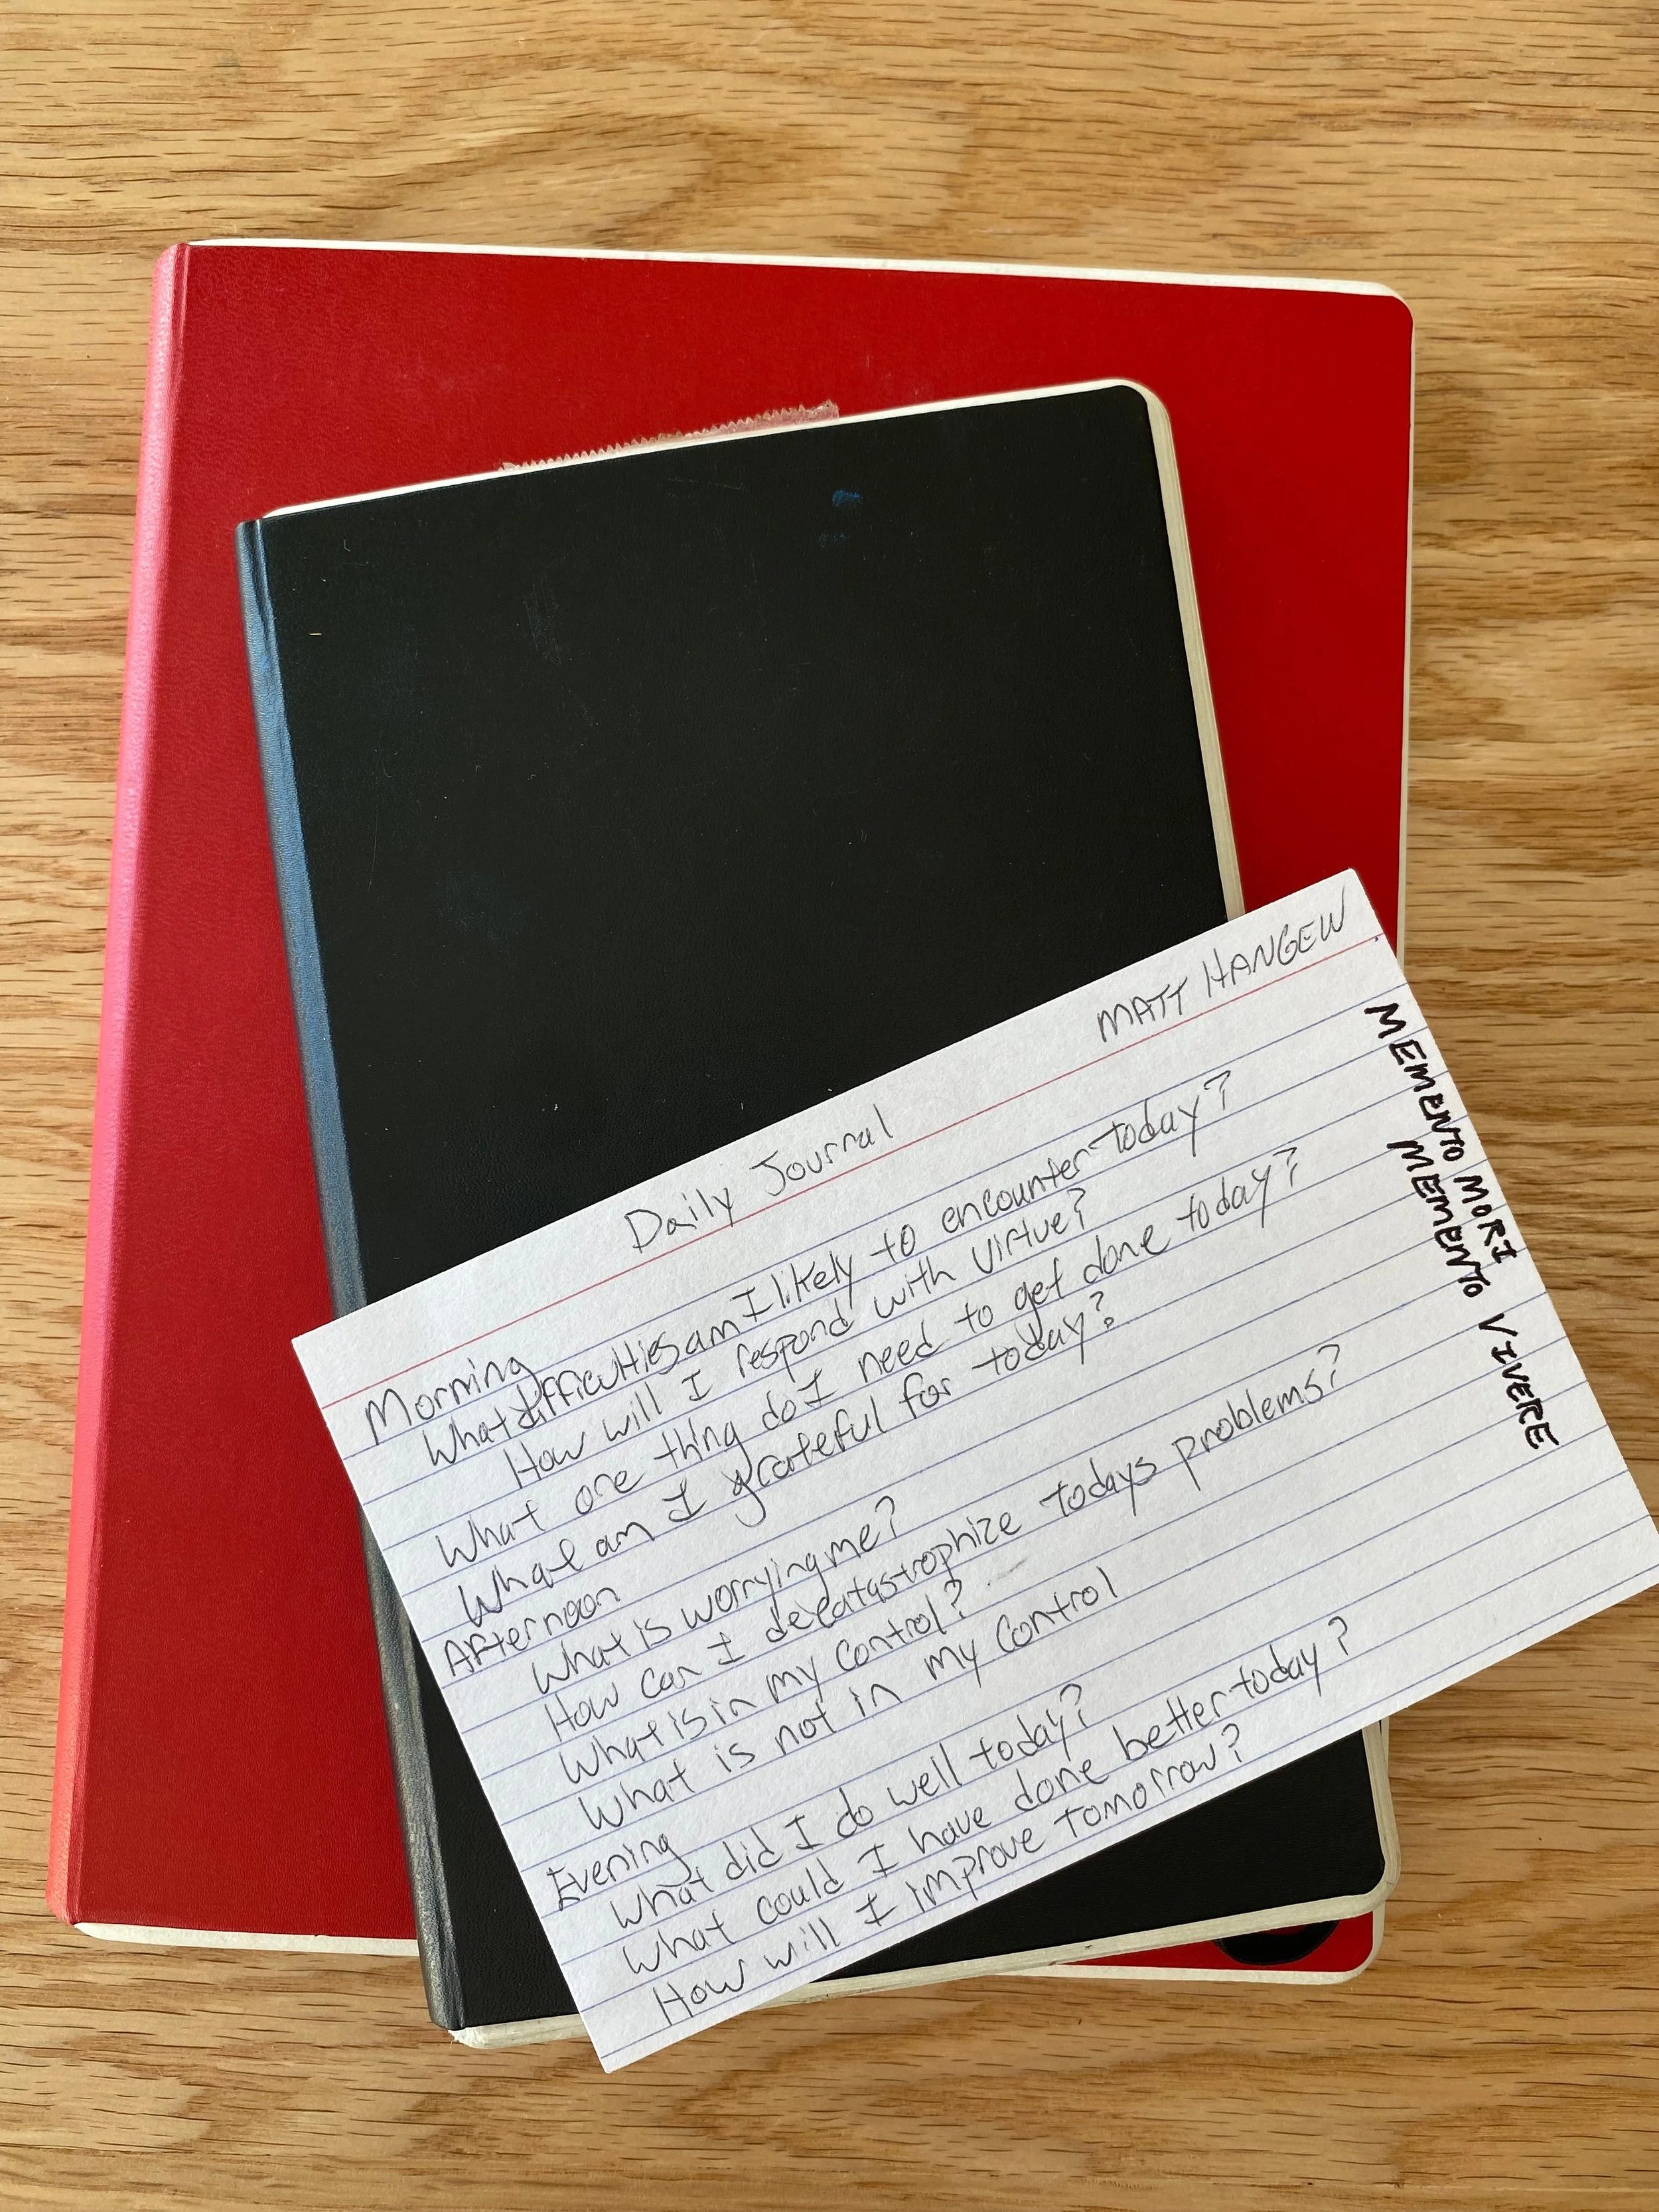 MATT HANGEW
Daily Journal
Morning
What difficulties am I likely to encounter today?
How will I respond with virtue?
What one thing do I need to get done today?
What am I grateful for today?
Afternoon
What is worrying me?
How can I decatastrophize todays problems?
What is in my control?
What is not in my control
Evening
What did I do well today?
What could I have done better today?
How will I improve tomorrow?
MEMENTO MORI
MEMENTO VIVERE